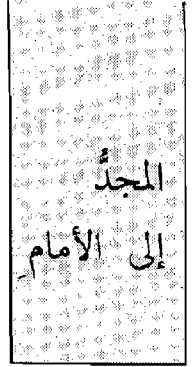 المجدَّ
إلى الأمامِ